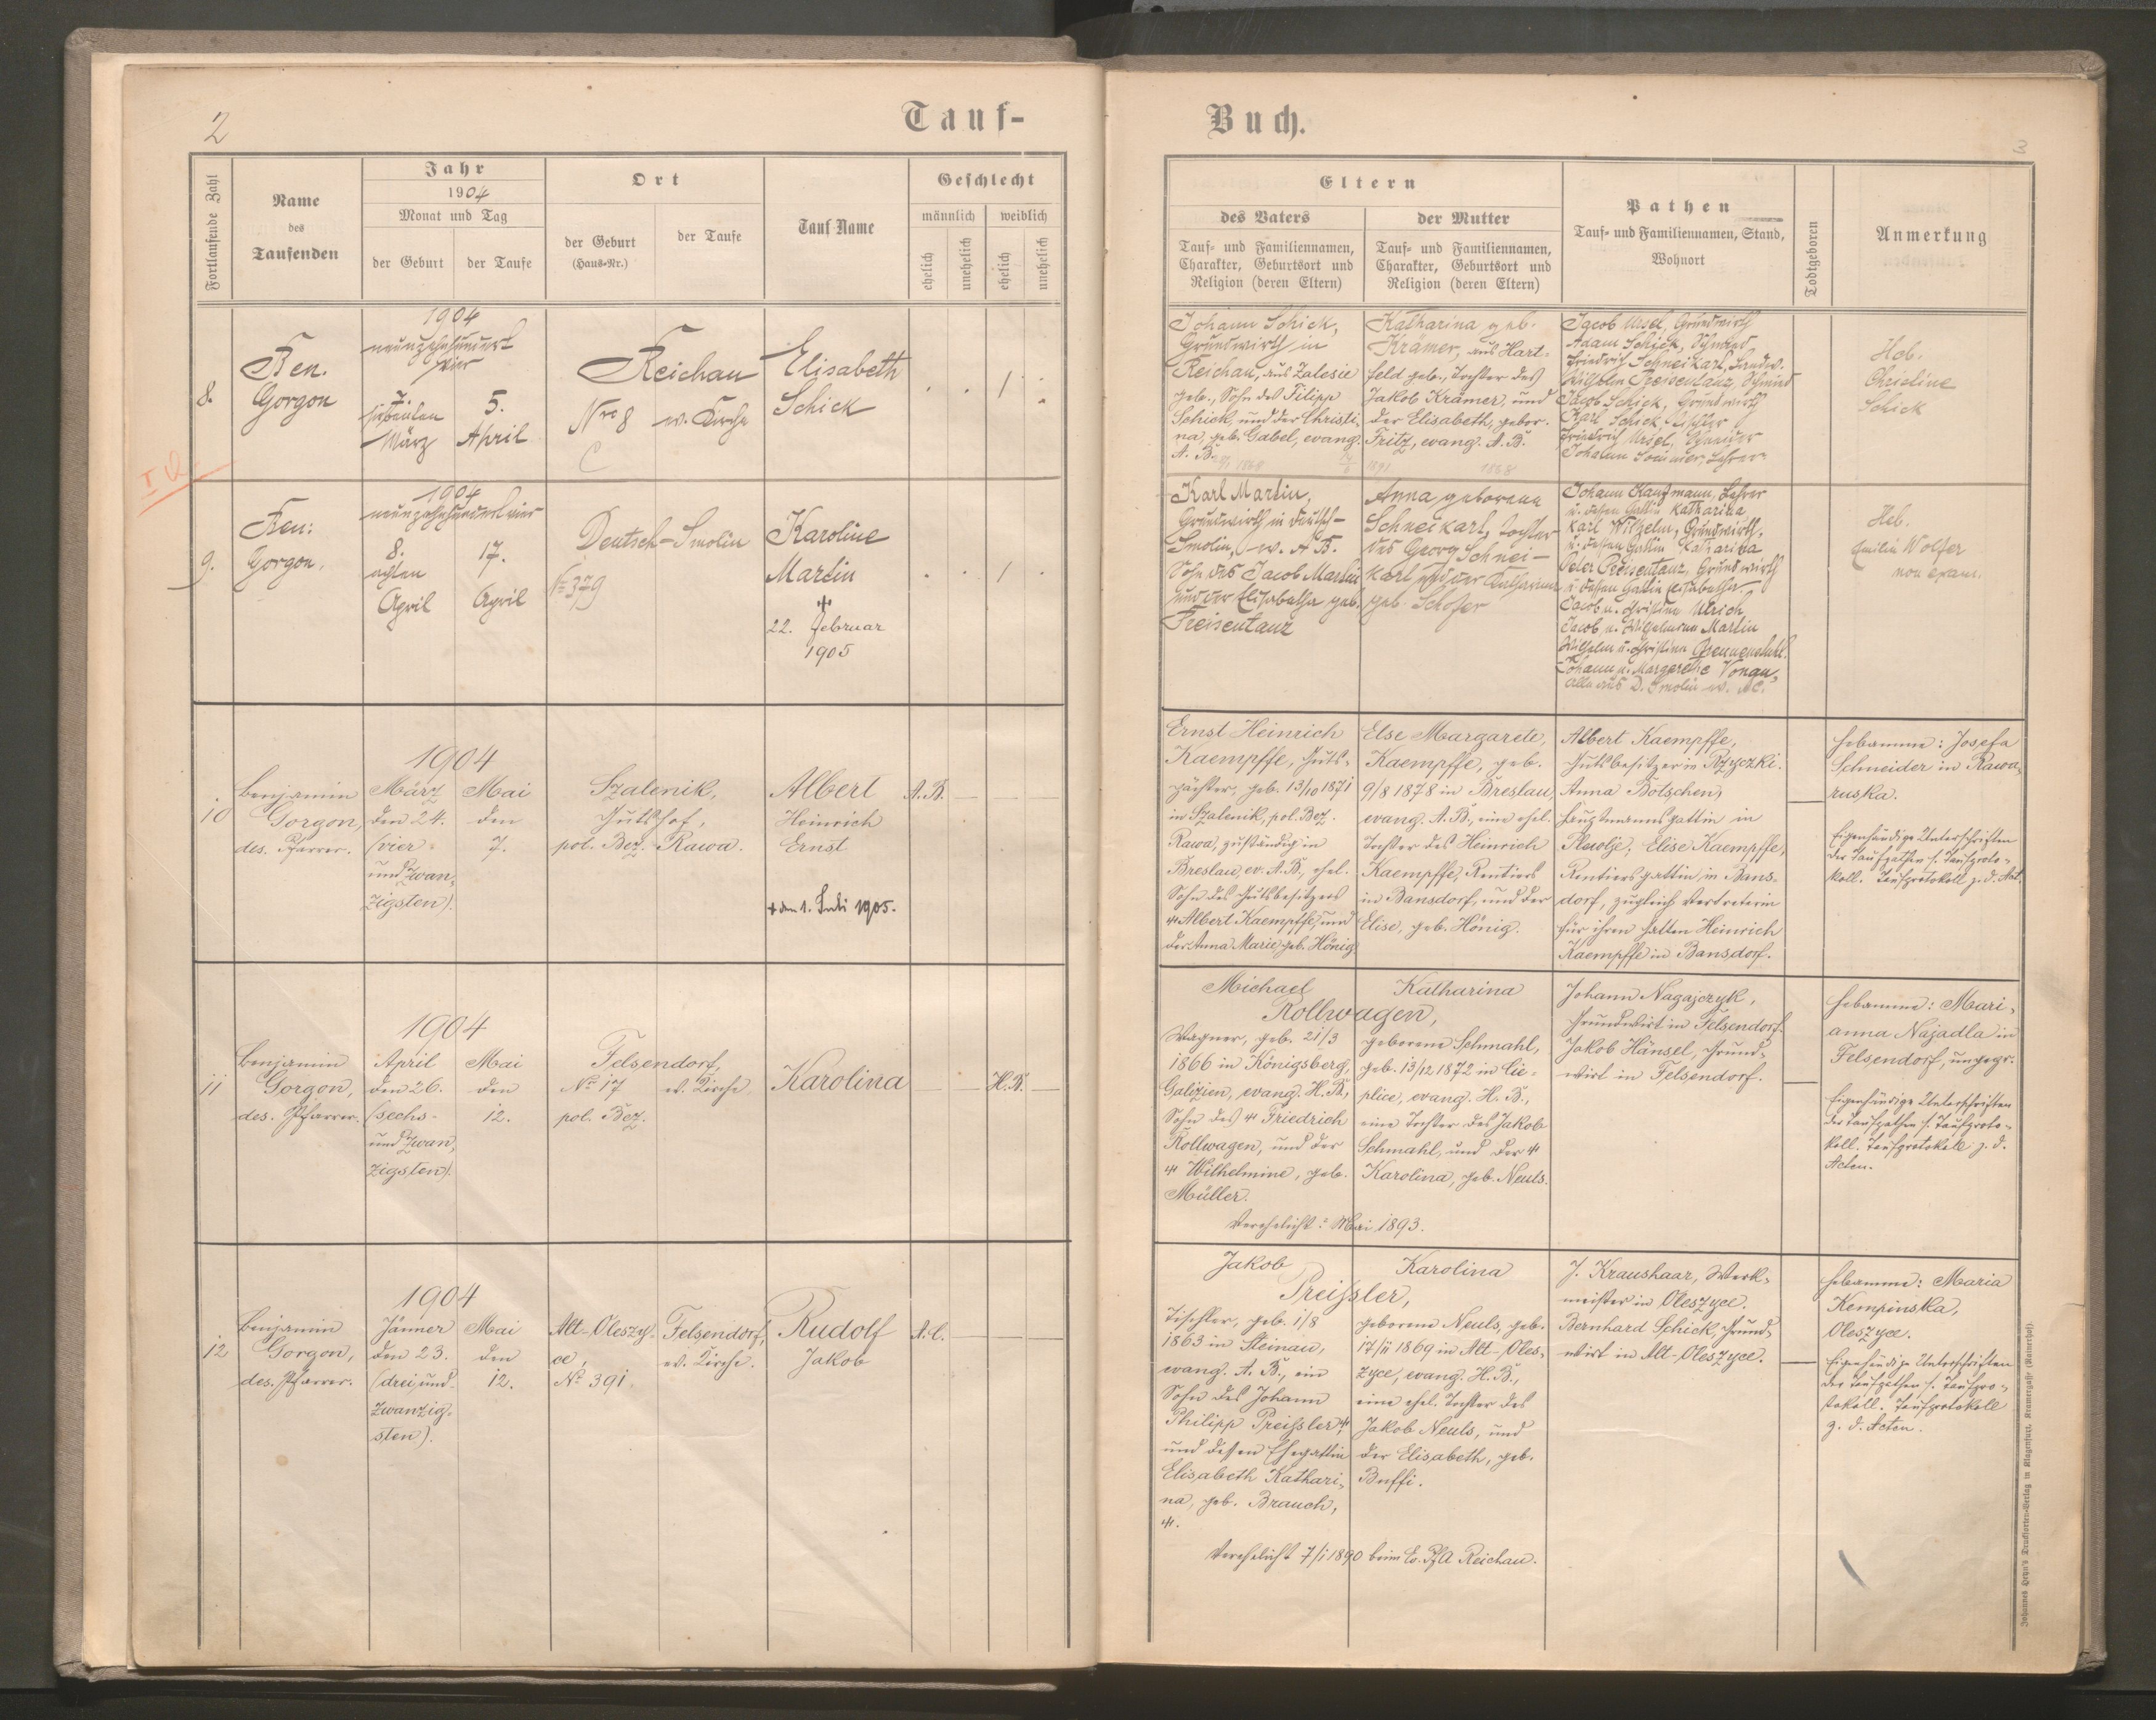 2
Tauf-
Fortlaufende Zahl
Name
des
Taufenden
Jahr
1904
Monat und Tag
der Geburt
der Taufe
Ort
der Geburt
(Haus-Nr.)
der Taufe
Tauf Name
Geschlecht
männlich
weiblich
ehelich
unehelich
ehelich
unehelich
8.
Ben.
Gorgon
1904
neunzehnhundert
vier
7.
siebenten
März
5.
April
Reichau
Nro 8
ev. Kirche
Elisabeth
Schick
1
I Q.
9.
Ben:
Gorgon.
1904
neunzehnhundertvier
8.
achten
April
17.
April
Deutsch-Smolin
Karoline
Martin
†
22. Februar
1905
1
10
Benjamin
Gorgon,
des. Pfarrer.
1904
März
den 24.
(vier
und zwan-
zigsten).
Mai
den
7.
Szalenik,
Gutshof,
pol. Bez. Rawa.
Albert
Heinrich
Ernst
† den 1. Juli 1905.
A. B.
11
Benjamin
Gorgon,
des. Pfarrer.
1904
April
den 26.
(sechs-
und zwan-
zigsten).
Mai
den
12.
Felsendorf,
No 17
ev. Kirche
pol. Bez.
Karolina
H. B.
12
Benjamin
Gorgon,
des. Pfarrer.
1904
Jänner
den 23.
(drei und
zwanzig-
sten).
Mai
den
12.
Alt-Oleszy-
ce,
No 391.
Felsendorf,
ev. Kirche.
Rudolf
Jakob
A. C.
Buch.
3
Eltern
des Vaters
Tauf- und Familiennamen,
Charakter, Geburtsort und
Religion (deren Eltern)
der Mutter
Tauf- und Familiennamen,
Charakter, Geburtsort und
Religion (deren Eltern)
Pathen
Tauf- und Familiennamen, Stand,
Wohnort
Todtgeboren
Anmerkung
Johann Schick,
Grundwirth in
Reichau, aus Zalesie
geb., Sohn des Filipp
Schick, und der Christi-
na, geb. Gabel, evang.
A. B.
Katharina geb.
Krämer, aus Hart-
feld geb., Tochter des
Jakob Krämer, und
der Elisabeth, gebor.
Fritz, evang. A. B.
Jacob Ursel, Grundwirth
Adam Schick, Schmied
Friedrich Schneikart, Grundw.
Wilhelm Freisentanz, Schmied
Jacob Schick, Grundwirth
Karl Schick, Tischler
Friedrich Ursel,
Johann Sommer, Lehrer
Heb.
Christine
Schick
Karl Martin,
Grundwirth in Deutsch-
Smolin, ev. A. B.
Sohn des Jacob Martin
und der Elisabetha geb.
Freisentanz
Anna geborene
Schneikart, Tochter
des Georg Schnei-
kart und der Katharina
geb. Schofer
Johann Kaufmann, Lehrer
u. dessen Gattin Katharina
Karl Wilhelm, Grundwirth,
u. dessen Gattin Katharina
Peter Freisentanz, Grundwirth
u. dessen Gattin Elisabetha.
Jacob u. Christina Ulrich
Jacob u. Wilhelmina Martin
Wilhelm u. Christina Brennenstuhl.
Johann u. Margarethe Vonau,
alle aus D. Smolin
Heb.
Emilie Wolfer
non exam.
Ernst Heinrich
Kaempffe, Guts-
pächter, geb. 13/10 1871
in Szalenik, pol. Bez.
Rawa, zuständig in
Breslau, ev. A. B., ehel.
Sohn des Gutsbesitzers
† Albert Kaempffe, und
der Anna Marie, geb. Hönig.
Else Margarete,
Kaempffe, geb.
9/8 1878 in Breslau,
evang. A. B., eine ehel.
Tochter des Heinrich
Kaempffe, Rentiers
in Bansdorf, und der
Elise, geb. Hönig.
Albert Kaempffe,
Gutsbesitzer in Rzyczki.
Anna Bötschen,
Hauptmannsgattin in
Plevolje; Elise Kaempffe,
Rentiersgattin in Bans-
dorf, zugleich Vertreterin
für ihren Gatten Heinrich
Kaempffe in Bansdorf.
Hebamme: Josefa
Schneider in Rawa-
ruska.
Eigenhändige Unterschriften
der Taufpathen s. Taufproto-
koll. Taufprotokoll z. d. Act.
Michael
Katharina
Rollwagen,
Wagner, geb. 21/3
1866 in Königsberg,
Galizien, evang. H. B.,
Sohn des † Friedrich
Rollwagen, und der
† Wilhelmine, geb.
Müller.
geborene Schmahl,
geb. 13/12 1872 in Cie-
plice, evang. H. B.,
eine Tochter des Jakob
Schmahl, und der †
Karolina, geb. Neuls.
Verehelicht: Mai 1893.
Johann Nagajczyk,
Grundwirt in Felsendorf.
Jakob Hänsel, Grund-
wirt in Felsendorf.
Hebamme: Mari-
anna Najadla in
Felsendorf, ungepr.
Eigenhändige Unterschriften
der Taufpathen s. Taufproto-
koll. Taufprotokoll z. d.
Acten.
Jakob
Karolina
Preißler,
Tischler, geb. 1/8
1863 in Steinau,
evang. A. B., ein
Sohn des Johann
Philipp Preißler †,
und dessen Ehegattin
Elisabeth Kathari-
na, geb. Brauch,
†.
geborene Neuls, geb.
17/11 1869 in Alt-Oles-
zyce, evang. H. B.,
eine ehel. Tochter des
Jakob Neuls, und
der Elisabeth, geb.
Buffi.
Verehelicht 7/1 1890 beim Ev. Pf. A Reichau.
J. Kraushaar, Werk-
meister in Oleszyce.
Bernhard Schick, Grund-
wirt in Alt-Oleszyce.
Hebamme: Maria
Kempinska,
Oleszyce.
Eigenhändige Unterschriften
der Taufpathen s. Taufpro-
tokoll. Taufprotokoll
z. d. Acten.
Johannes Heyn's Drucksorten-Verlag in Klagenfurt, Kramergasse (Rainerhof).